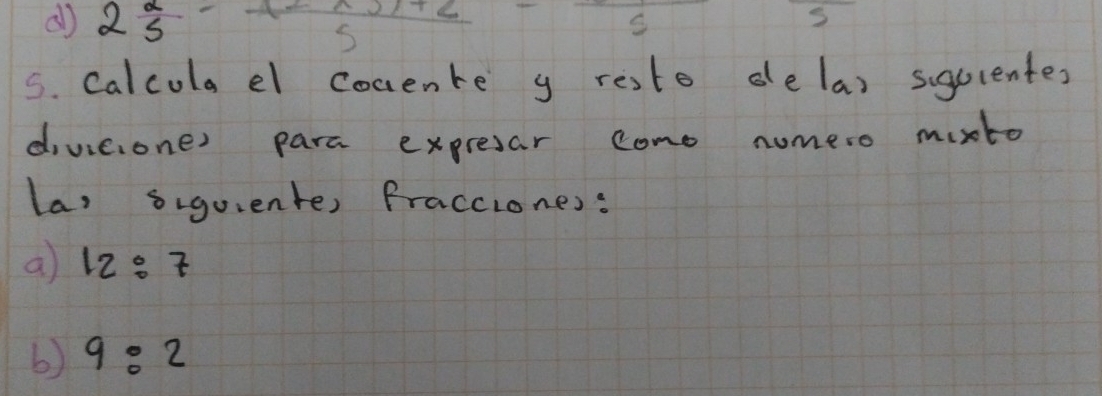 d) 2 2/5 - (2 x 5) + 2 / 5 - / 5 / 5
5. Calcula el cociente y resto de las siguientes
diviciones para expresar como numero mixto
las siguientes fracciones:
a) 12 : 7
b) 9 : 2